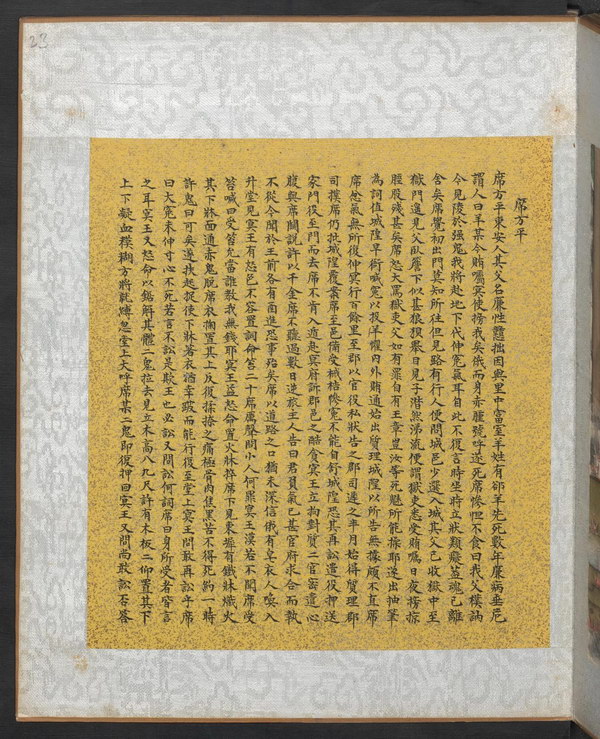 席方平
席方平東安人其父名廉性戇拙因與里中富室羊姓有郤羊先死數年廉病垂危
謂人曰羊某今賄囑冥使搒我矣俄而身赤腫號呼遂死席慘怛不食曰我父樸訥
今見陵於強鬼我將赴地下代伸冤氣耳自此不復言時坐時立狀類癡蓋魂已離
舍矣席覺初出門莫知所往但見路有行人便問城邑少選入城其父已收獄中至
獄門遙見父臥簷下似甚狼狽舉目見子潸然涕流便謂獄吏悉受賕囑日夜搒掠
脛股殘甚矣席怒大罵獄吏父如有罪自有王章豈汝等死魅所能操耶遂出抽筆
為詞值城隍早衙喊冤以投羊懼內外賄通始出質理城隍以所告無據頗不直席
席忿氣無所復伸冥行百餘里至郡以官役私狀告之郡司遲之半月始得質理郡
司撲席仍批城隍覆案席至邑備受械梏慘冤不能自舒城隍恐其再訟遣役押送
家門役至門而去席不肯入遁赴冥府訴郡邑之酷貪冥王立拘對質二官密遣心
腹與席關說許以千金席不聽過數日逆旅主人告曰君負氣已甚官府求合而執
不從今聞於王前各有函進恐事殆矣席以道路之口猶未深信俄有皂衣人喚入
升堂見冥王有怒色不容置詞命笞二十席厲聲問小人何罪冥王漠若不聞席受
笞喊曰受笞允當誰教我無錢耶冥王益怒命置火牀捽席下見東墀有鐵牀熾火
其下牀面通赤鬼脫席衣掬置其上反復揉捺之痛極骨肉焦黑苦不得死約一時
許鬼曰可矣遂扶起促使下牀著衣猶幸跛而能行復至堂上冥王問敢再訟乎席
曰大冤未伸寸心不死若言不訟是欺王也必訟又問訟何詞席曰身所受者皆言
之耳冥王又怒命以鋸解其體二鬼拉去見立木高八九尺許有木板二仰置其下
上下凝血模糊方將就縛忽堂上大呼席某二鬼即復押回冥王又問尚敢訟否答